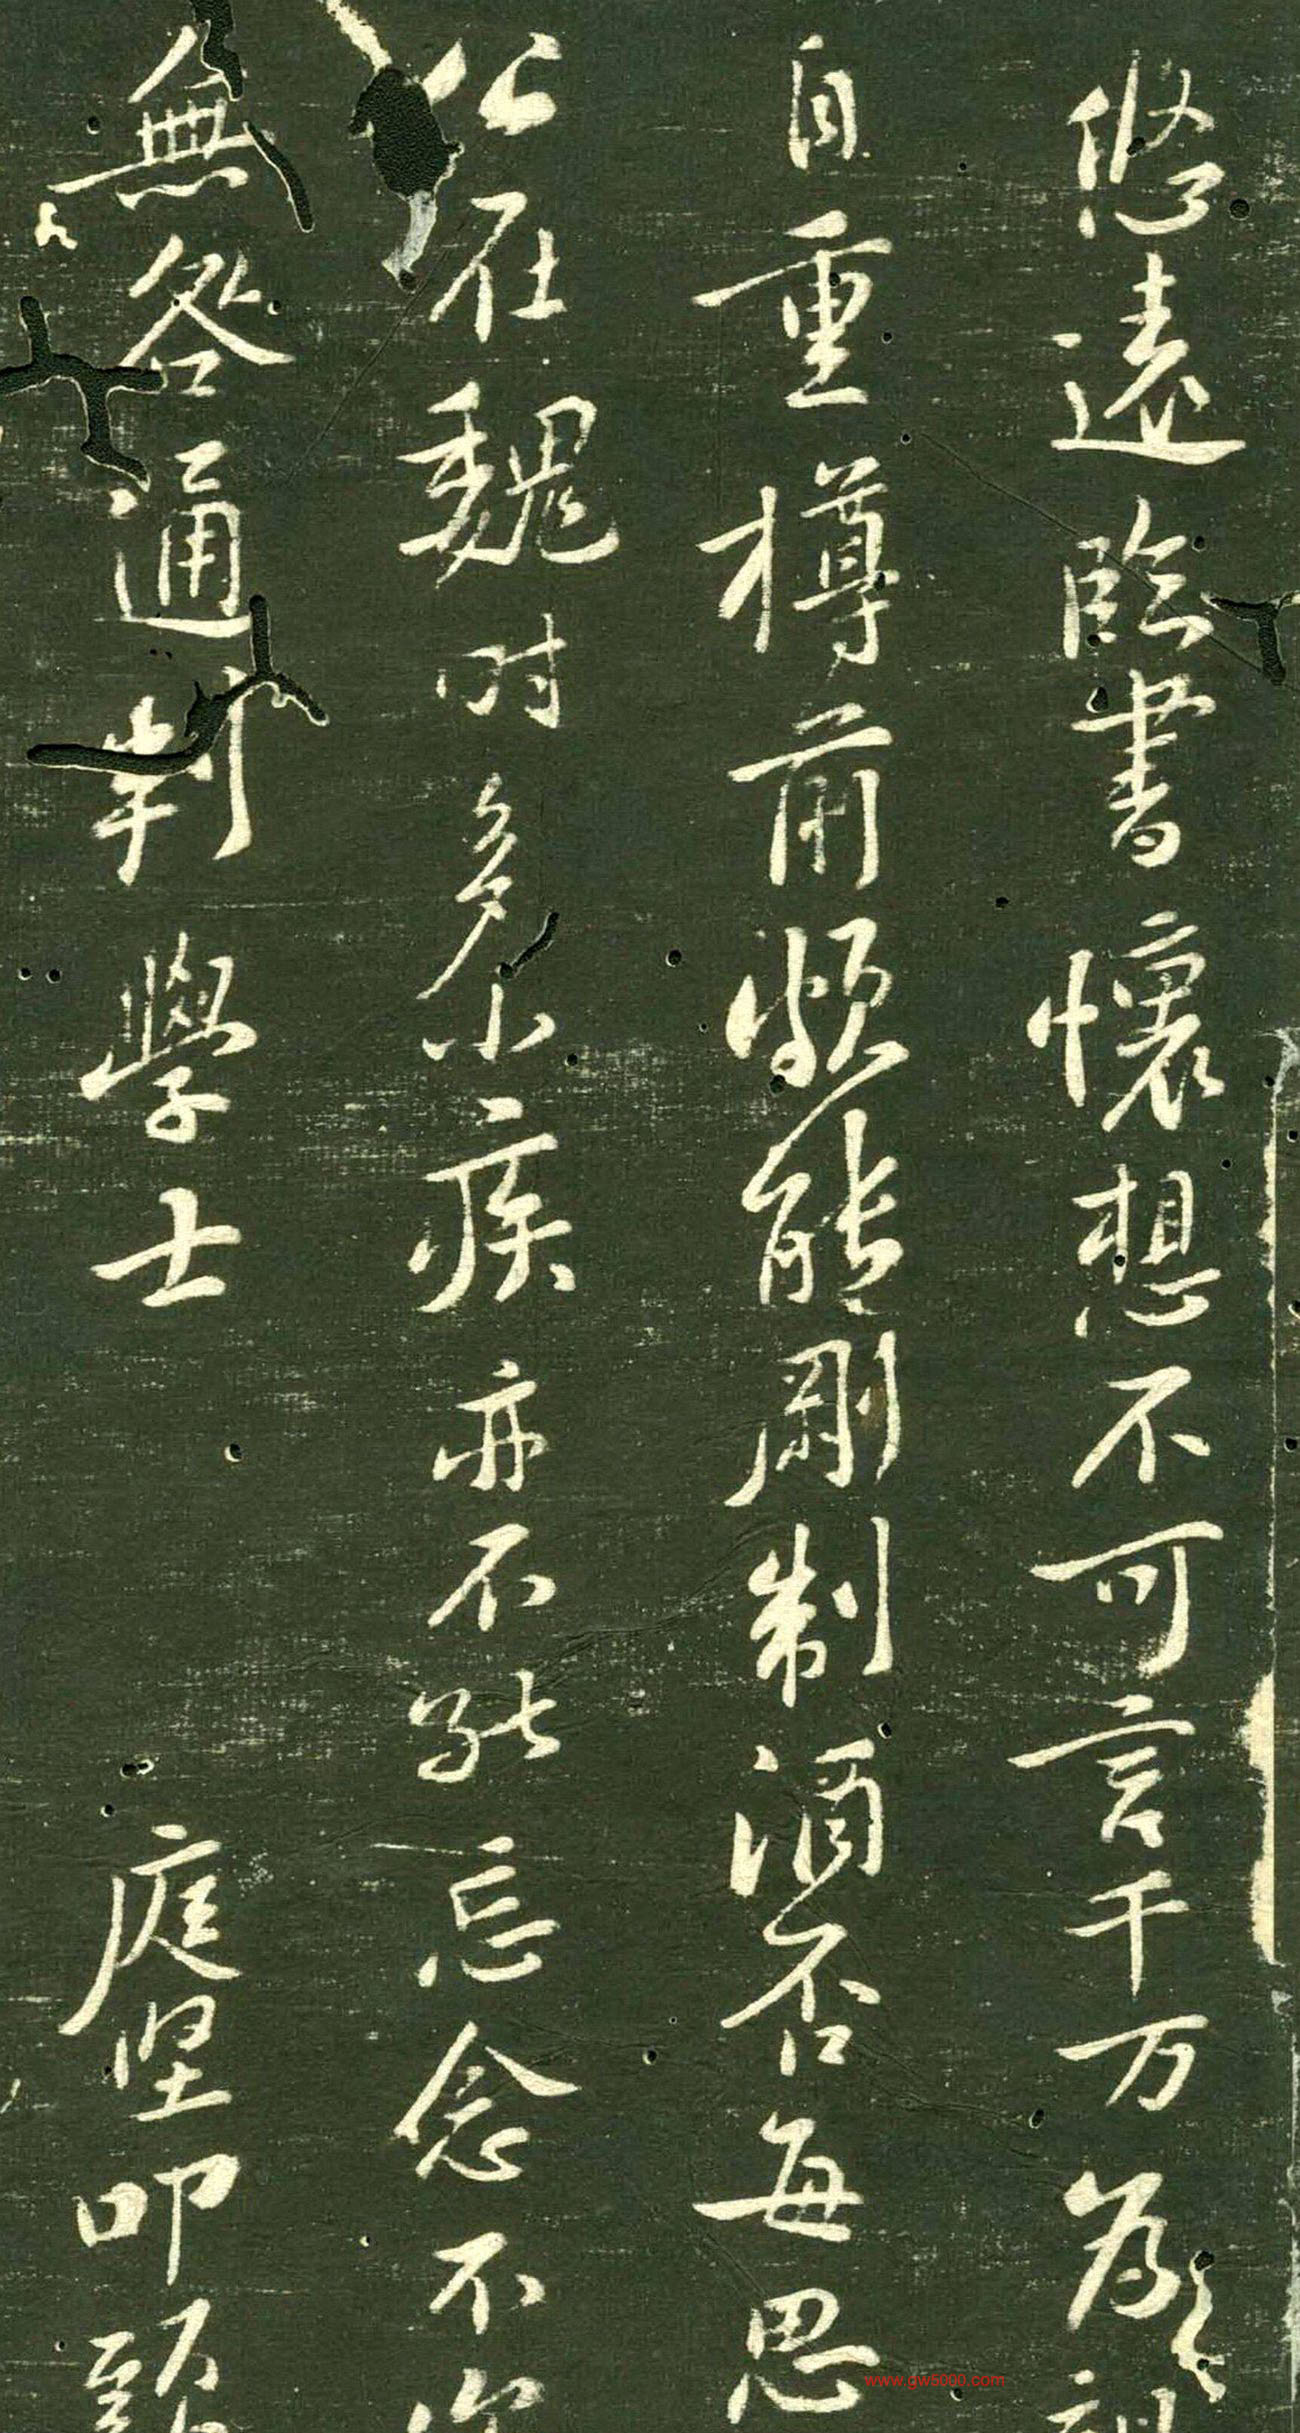 悠遠臨書懷想不可言千万為親
自重樽前頗能剛制酒否每思
公在魏时多小疾亦不能忘念不
無咎通判學士 庭坚叩頭
www.gw5000.com